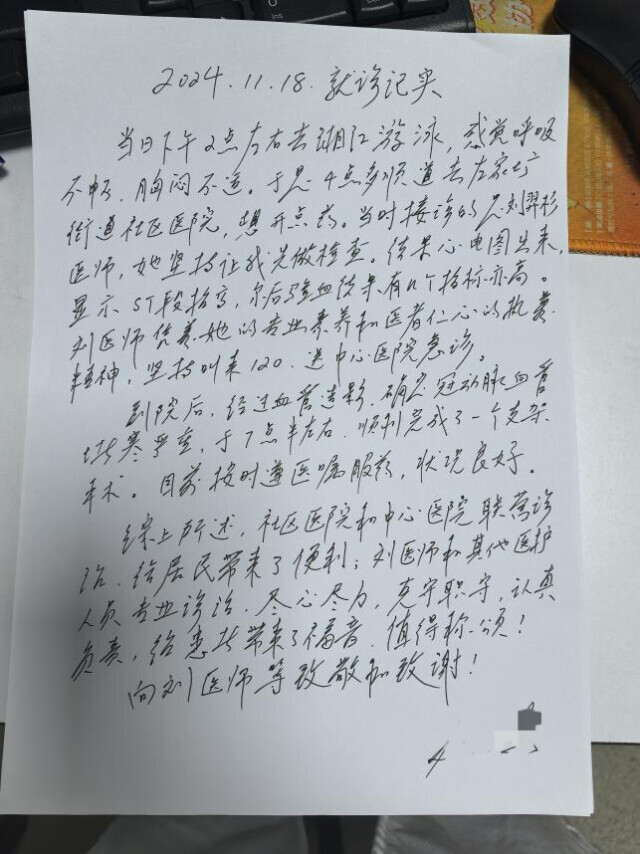 2024.11.18.就诊记实
当日下午2点左右去湖江游泳，感觉呼吸
不畅，胸闷不适。于是4点多顺道去左家垅
街道社区医院，想开点药。当时接诊的是刘羿杉
医师，她坚持让我先做检查。结果心电图出来，
显示ST段抬高，尔后验血结果有几个指标亦高。
刘医师凭着她的专业素养和医者仁心的执着
精神，坚持叫来120.送中心医院急诊。
到院后，经过血管造影.确定冠动脉血管
堵塞严重，于7点半左右.顺利完成了一个支架
手术。目前按时遵医嘱服药，状况良好。
综上所述，社区医院和中心医院联荡诊
治.给居民带来了便利；刘医师和其他医护
人员专业诊治.尽心尽力，克守职守，认真
负责，给患者带来了福音.值得称颂！
向刘医师等致敬和致谢！